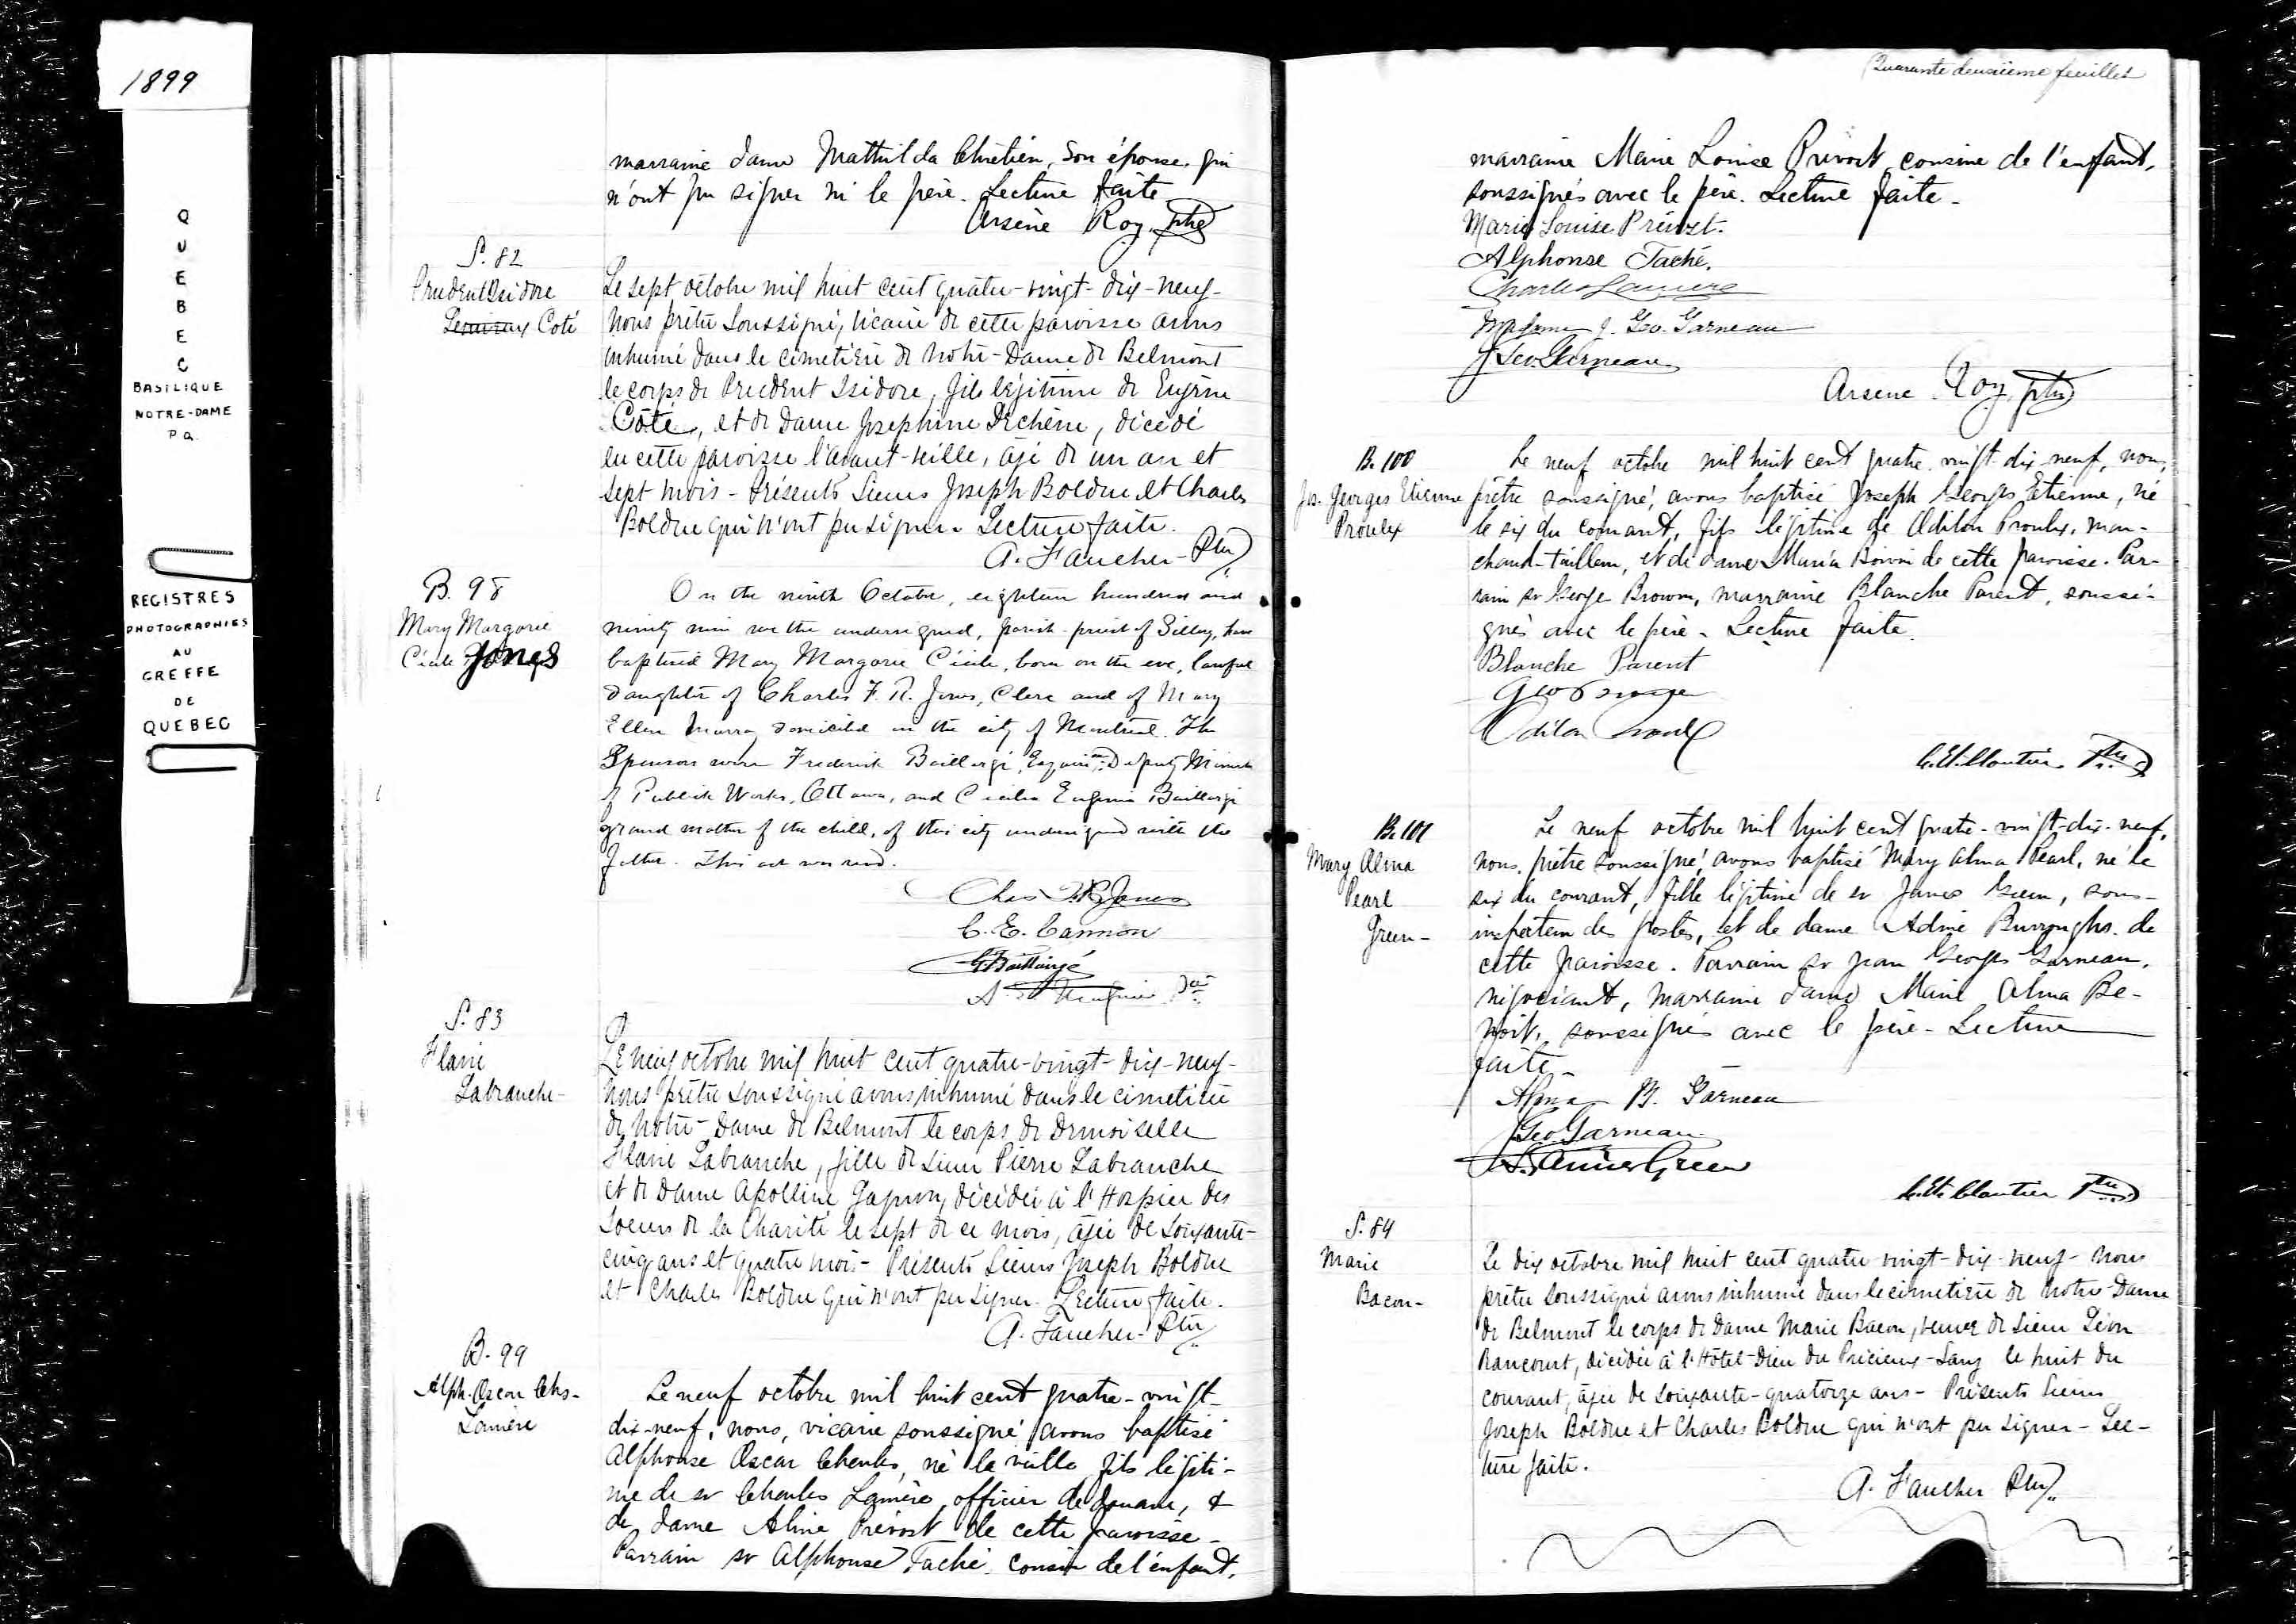 1899
QUEBEC
BASILIQUE
NOTRE-DAME
P.Q.
REGISTRES
PHOTOGRAPHIES
AU
GREFFE
DE
QUEBEC
marraine dame Mathilda Chrétien, son épouse, qui
n'ont pu signer ni le père. Lecture faite
Arsène Roy, ptre
S. 82
Prudent Isidore
Coté
Le sept octobre mil huit cent quatre-vingt-dix-neuf-
Nous prêtre soussigné, vicaire de cette paroisse avons
inhumé dans le cimetière de Notre-Dame de Belmont
le corps de Prudent Isidore, fils légitime de Eugène
Côté, et de Dame Josephine Dechêne, décédé
en cette paroisse l'avant-veille, âgé de un an et
sept mois - Présents Sieurs Joseph Bolduc et Charles
Bolduc qui n'ont pu signer. Lecture faite.
A. Faucher - Ptre
B. 98
Mary Margorie
Cécile Jones
On the ninth October, eighteen hundred and
ninety nine we the undersigned, parish-priest of Sillery, have
baptised Mary Margorie Cécile, born on the eve, lawful
daughter of Charles F. R. Jones, Clerc and of Mary
Ellen Murray domiciled in the city of Montreal. The
Sponsors were Frederick Baillargé, Esquire, Deputy Minister
of Publick Works, Ottawa, and Cecilia Eugenia Baillargé
grand mother of the child, of this city undersigned with the
father. This act was read.
Chas F. R. Jones
C. E. Cannon
G. F. Baillairgé
S. 83
Flavie
Labranche -
Le neuf octobre mil huit cent quatre-vingt-dix-neuf-
Nous prêtre soussigné avons inhumé dans le cimetière
de Notre-Dame de Belmont le corps de Demoiselle
Flavie Labranche, fille de Sieur Pierre Labranche
et de Dame Apolline Gagnon, décédée à l'Hospice des
Soeurs de la Charité le sept de ce mois, âgée de soixante-
cinq ans et quatre mois - Présents Sieurs Joseph Bolduc
et Charles Bolduc qui n'ont pu signer. Lecture faite.
A. Faucher - Ptre
B. 99
Alph. Oscar Chs.
Lamère
Le neuf octobre mil huit cent quatre-vingt-
dix-neuf, nous, vicaire soussigné avons baptisé
Alphonse Oscar Charles, né la veille, fils légiti-
me de sr Charles Lamère, officier de douane, &
de dame Aline Prévost de cette paroisse -
Parrain sr Alphonse Taché cousin de l'enfant,
Quarante deuxième feuillet
marraine Marie Louise Prévost cousine de l'enfant,
soussignés avec le père. Lecture faite -
Marie Louise Prévost.
Alphonse Taché.
Charles Lamère
Madame J. Geo. Garneau
J Geo. Garneau
Arsène Roy, ptre
B. 100
Jos. Georges Etienne
Proulx
Le neuf octobre mil huit cent quatre-vingt-dix-neuf, nous,
prêtre soussigné, avons baptisé Joseph Georges Etienne, né
le six du courant, fils légitime de Odilon Proulx, mar-
chand-tailleur, et de dame Maria Boivin de cette paroisse. Par-
rain sr George Brown, marraine Blanche Parent, soussi-
gnés avec le père - Lecture faite.
Blanche Parent
Odilon Proulx
C. El. Cloutier Ptre
B. 101
Mary Alma
Pearl
Green -
Le neuf octobre mil huit cent quatre-vingt-dix-neuf,
nous, prêtre soussigné, avons baptisé Mary Alma Pearl, né le
six du courant, fille légitime de sr James Green, sous-
inspecteur des postes, et de dame Admé Burroughs de
cette paroisse. Parrain sr Jean Georges Garneau,
négociant, marraine dame Marie Alma Be-
noit, soussignés avec le père - Lecture
faite -
Alma B. Garneau
J Geo. Garneau
S. James Green
C. El. Cloutier Ptre
S. 84
Marie
Bacon -
Le dix octobre mil huit cent quatre vingt-dix-neuf - Nous
prêtre soussigné avons inhumé dans le cimetière de Notre-Dame
de Belmont le corps de Dame Marie Bacon, veuve de Sieur Léon
Rancourt, décédée à l'Hôtel-Dieu du Précieux-Sang le huit du
courant, âgée de soixante-quatorze ans - Présents Sieurs
Joseph Bolduc et Charles Bolduc qui n'ont pu signer - Lec-
ture faite.
A. Faucher Ptre